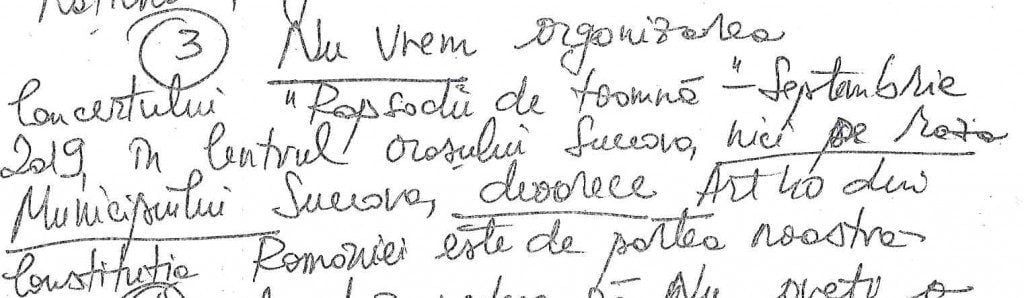 ③ Nu vrem organizarea
Concertului "Rapsodii de toamnă" - Septembrie
2019, în Centrul orașului Suceava, nici pe raza
Municipiului Suceava, deoarece Art 40 din
Constituția României este de partea noastră
Nu